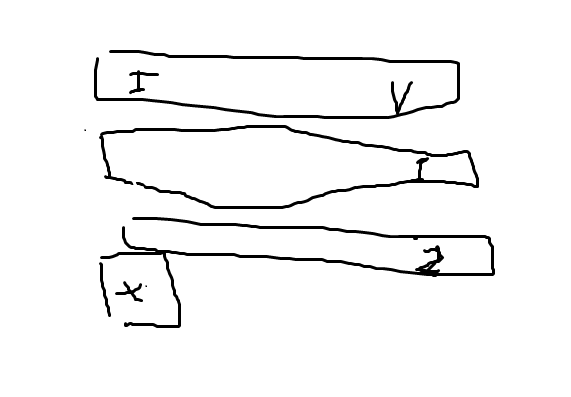 I V
I
2
X